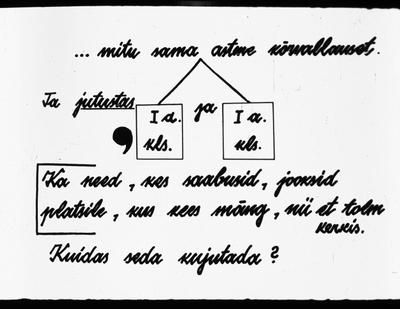 ... mitu sama astme kõrvallauset.
Ta jutustas, I a. kls. ja I a. kls.
Ka need, kes saabusid, jooksid
platsile, kus kees mäng, nii et tolm
kerkis.
Kuidas seda kujutada?